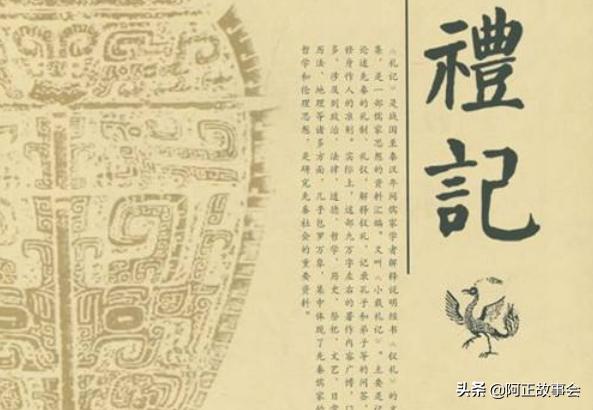 禮記
《礼记》是战国至秦汉年间儒家学者解释说明经书《仪礼》的
集，是一部儒家思想的资料汇编。又叫《小戴礼记》。主要是记
论述先秦的礼制、礼仪，解释仪礼，记录孔子和弟子等的问答，
修身作人的准则。实际上，这部九万字左右的著作内容广博，门
多，涉及到政治、法律、道德、哲学、历史、祭祀、文艺、日常
历法、地理等诸多方面，几乎包罗万象，集中体现了先秦儒家的
哲学和伦理思想，是研究先秦社会的重要资料。
头条 @阿正故事会